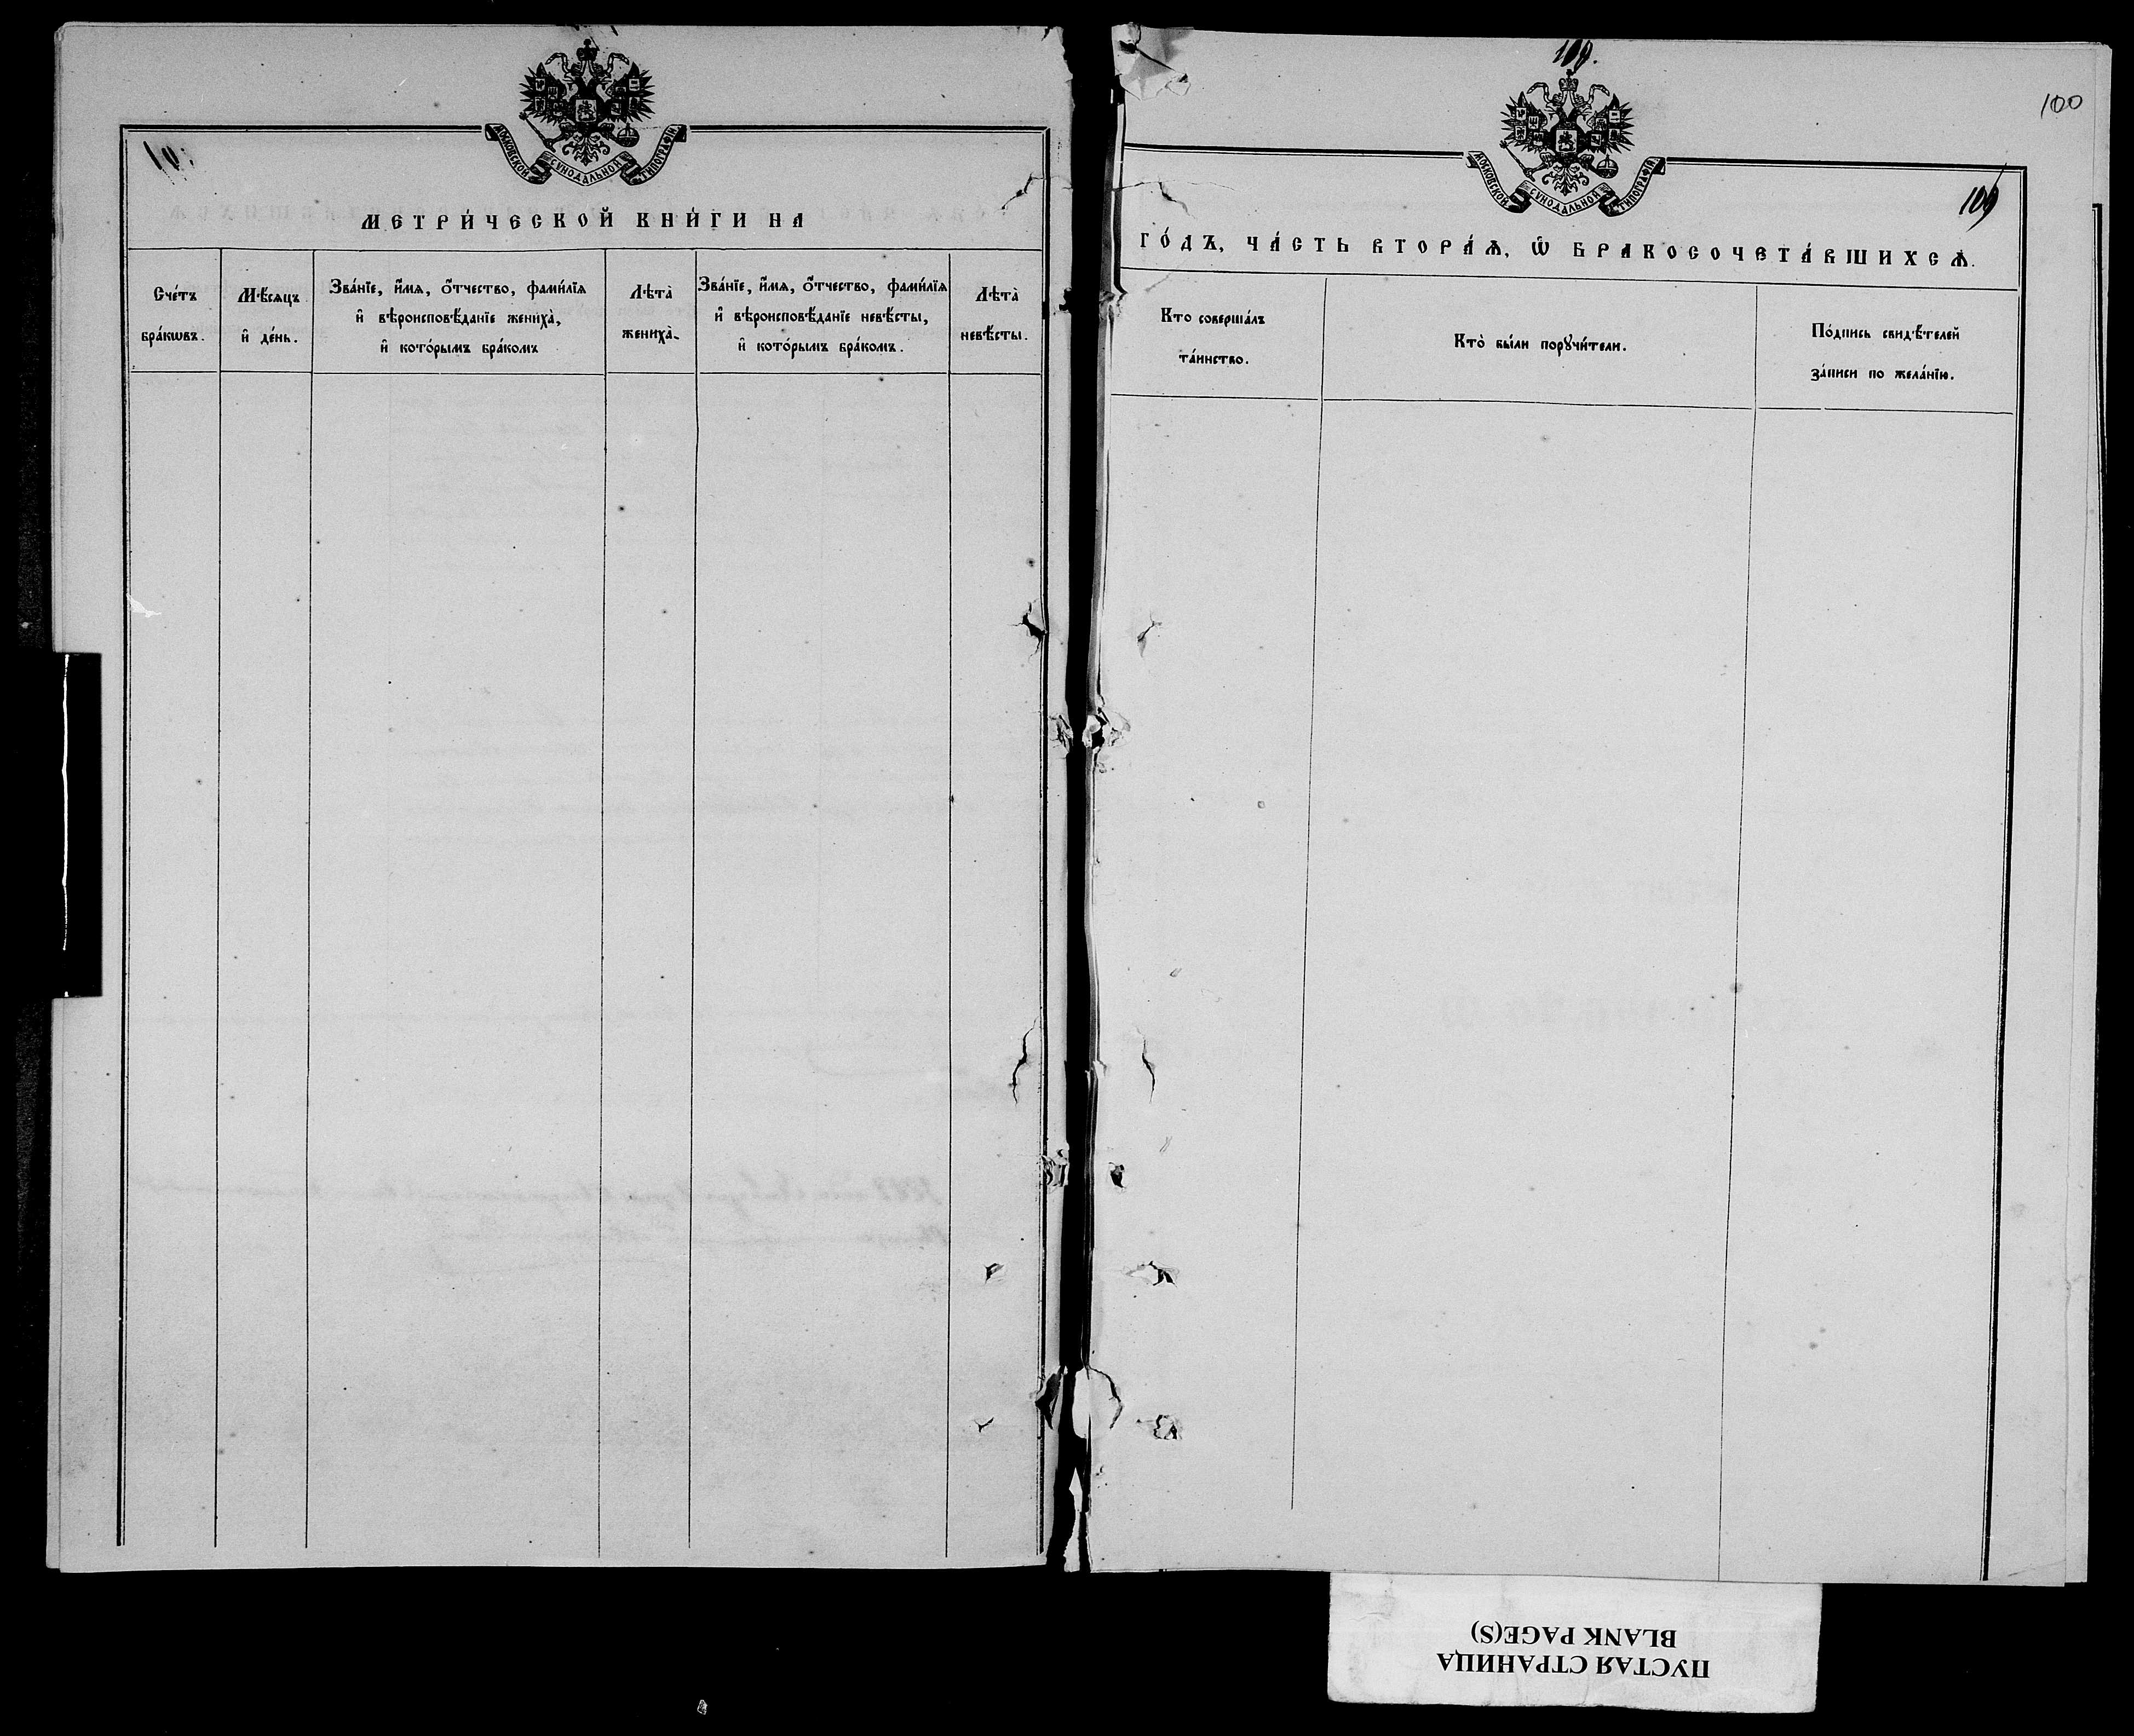 МОСКОВСКОЙ СѴНОДАЛЬНОЙ ТИПОГРАФІИ
МЕТРИ́ЧЕСКОЙ КНИ́ГИ НА
Сче́тъ
бра́кѡвъ.
Мѣ́сяцъ
и҆ де́нь.
Зва́нїе, и҆́мя, ѻ҆́тчество, фами́лїя
и҆ вѣроисповѣ́данїе женихà,
и҆ кото́рымъ бра́комъ
Лѣтà
женихà.
Зва́нїе, и҆́мя, ѻ҆́тчество, фами́лїя
и҆ вѣроисповѣ́данїе невѣ́сты,
и҆ кото́рымъ бра́комъ.
Лѣтà
невѣ́сты.
100
МОСКОВСКОЙ СѴНОДАЛЬНОЙ ТИПОГРАФІИ
109
ГО́ДЪ, ЧА́СТЬ ВТОРА́Ѧ, Ѿ БРАКОСОЧЕТА́ВШИХСѦ.
Кто соверша́лъ
та́инство.
Ктò бы́ли порꙋчи́тели.
По́дпись свидѣ́телей
за́писи по жела́нїю.
ПУСТАЯ СТРАНИЦА
BLANK PAGE(S)